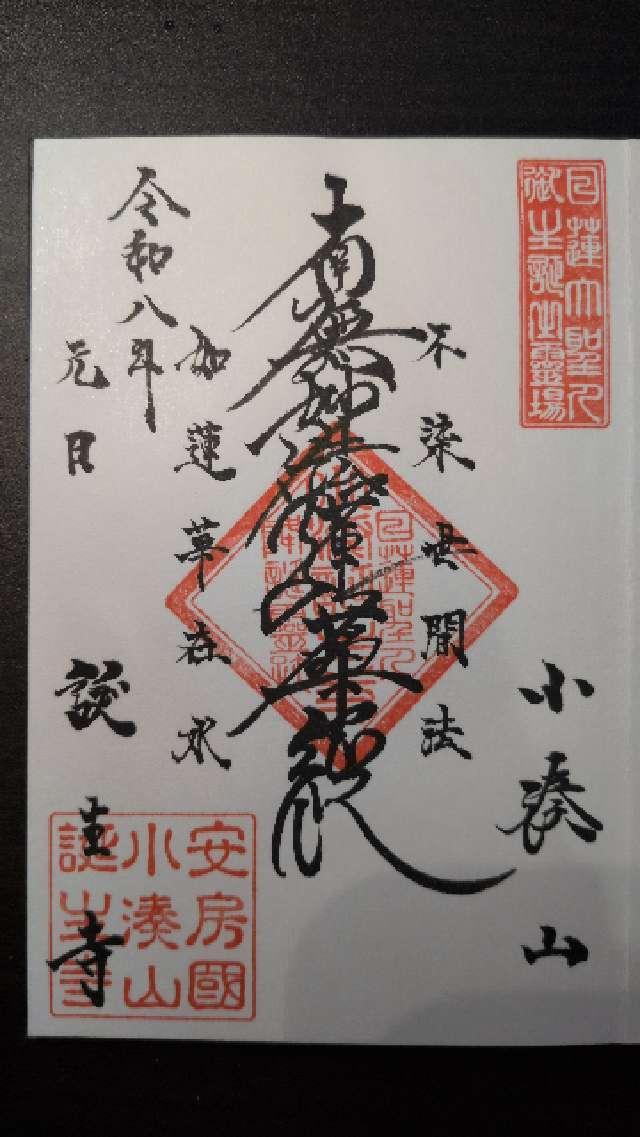 日蓮大聖人
御生誕之霊場
小湊山
不染世間法
南無妙法蓮華経
如蓮華在水
令和八年
元日
誕生寺
安房國
小湊山
誕生寺